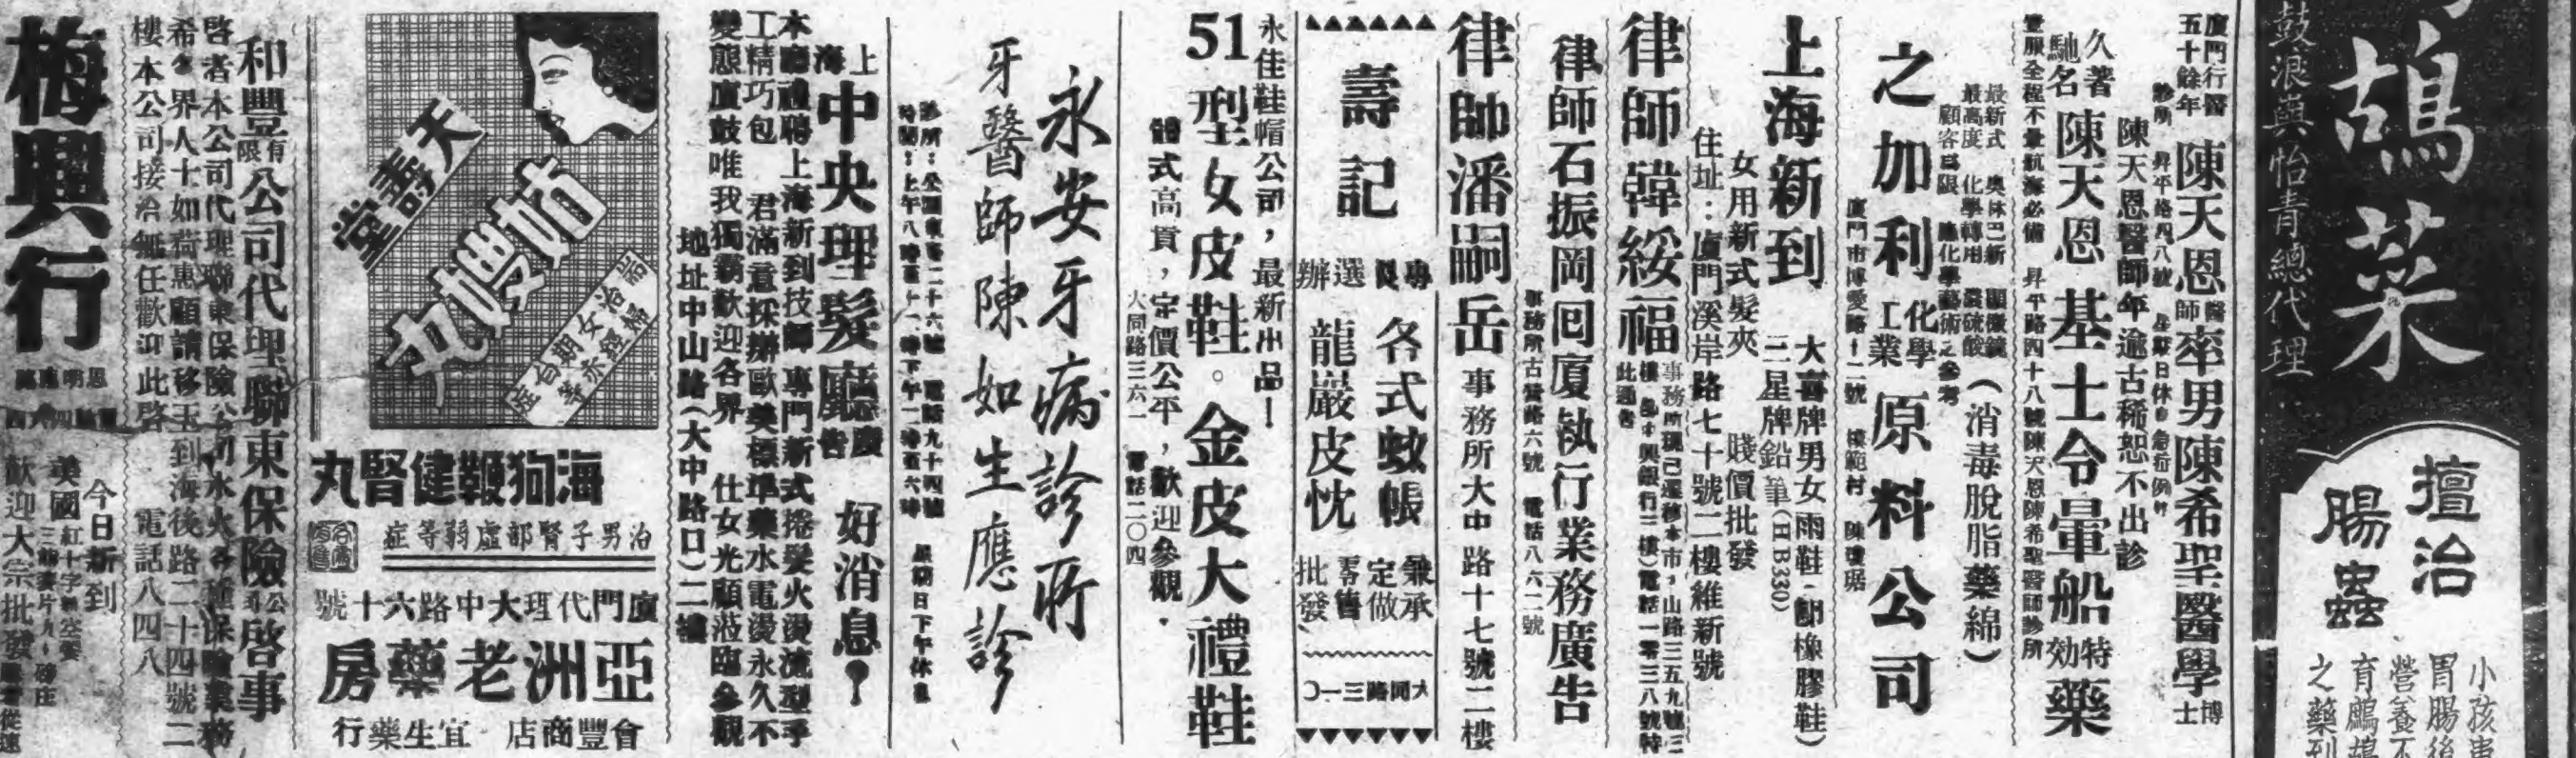 鷓鴣菜
鼓浪與怡青總代理
擅治
腸蟲
小孩患
胃腸後
營養不
育鷓鴣
之藥到
廈門行醫
五十餘年
陳天恩醫師率男陳希聖醫學博士
診所 昇平路四八號 星期日休息
陳天恩醫師年逾古稀恕不出診
久著
馳名
陳天恩基士令暈船特効藥
昇平路四十八號陳天恩陳希聖醫師診所
最新式
最高度
顧客為限
(消毒脫脂藥綿)
之加利化學工業原料公司
廈門市博愛路十二號 模範村 陳瓊琚
上海新到
大喜牌男女雨鞋(即橡膠鞋)
三星牌鉛筆(HB330)
女用新式髮夾 賤價批發
住址:廈門溪岸路七十號二樓維新號
律師韓綏福
事務所現已遷移本市中山路三五九號三
樓 電話一零三八號特
此通告
律師石振岡回廈執行業務廣告
事務所古營路六號 電話八六二號
律師潘嗣岳事務所大中路十七號二樓
壽記
專門
選辦
各式蚊帳
龍巖皮枕
兼承
定做
零售
批發
大同路三一〇
永佳鞋帽公司,最新出品!
51型女皮鞋。金皮大禮鞋
體式高貴,定價公平,歡迎參觀.
大同路三六一 電話二〇四
永安牙病診所
牙醫師陳如生應診
時間:上午八時至十二時下午二時至六時 星期日下午休息
上海中央理髮廳廣告 好消息!
本廳禮聘上海新到技師專門新式捲髮火燙流型手
工精巧包 君滿意採辦歐美標準藥水電燙永久不
變態廈鼓唯我獨霸歡迎各界 仕女光顧蒞臨參觀
地址中山路(大中路口)二樓
天壽堂
姑嫂丸
海狗鞭健腎丸
治男子腎部虛弱等症
廈門代理大中路六十號
亞洲老藥房
會豐商店 宜生藥行
和豐有限公司代理聯東保險公司啓事
啓者本公司代理聯東保險公司水火各種保險業務
希各界人士如荷惠顧請移玉到海後路二十四號二
樓本公司接洽無任歡迎此啓 電話八四八
梅興行
今日新到
美國
紅十字
歡迎大宗批發